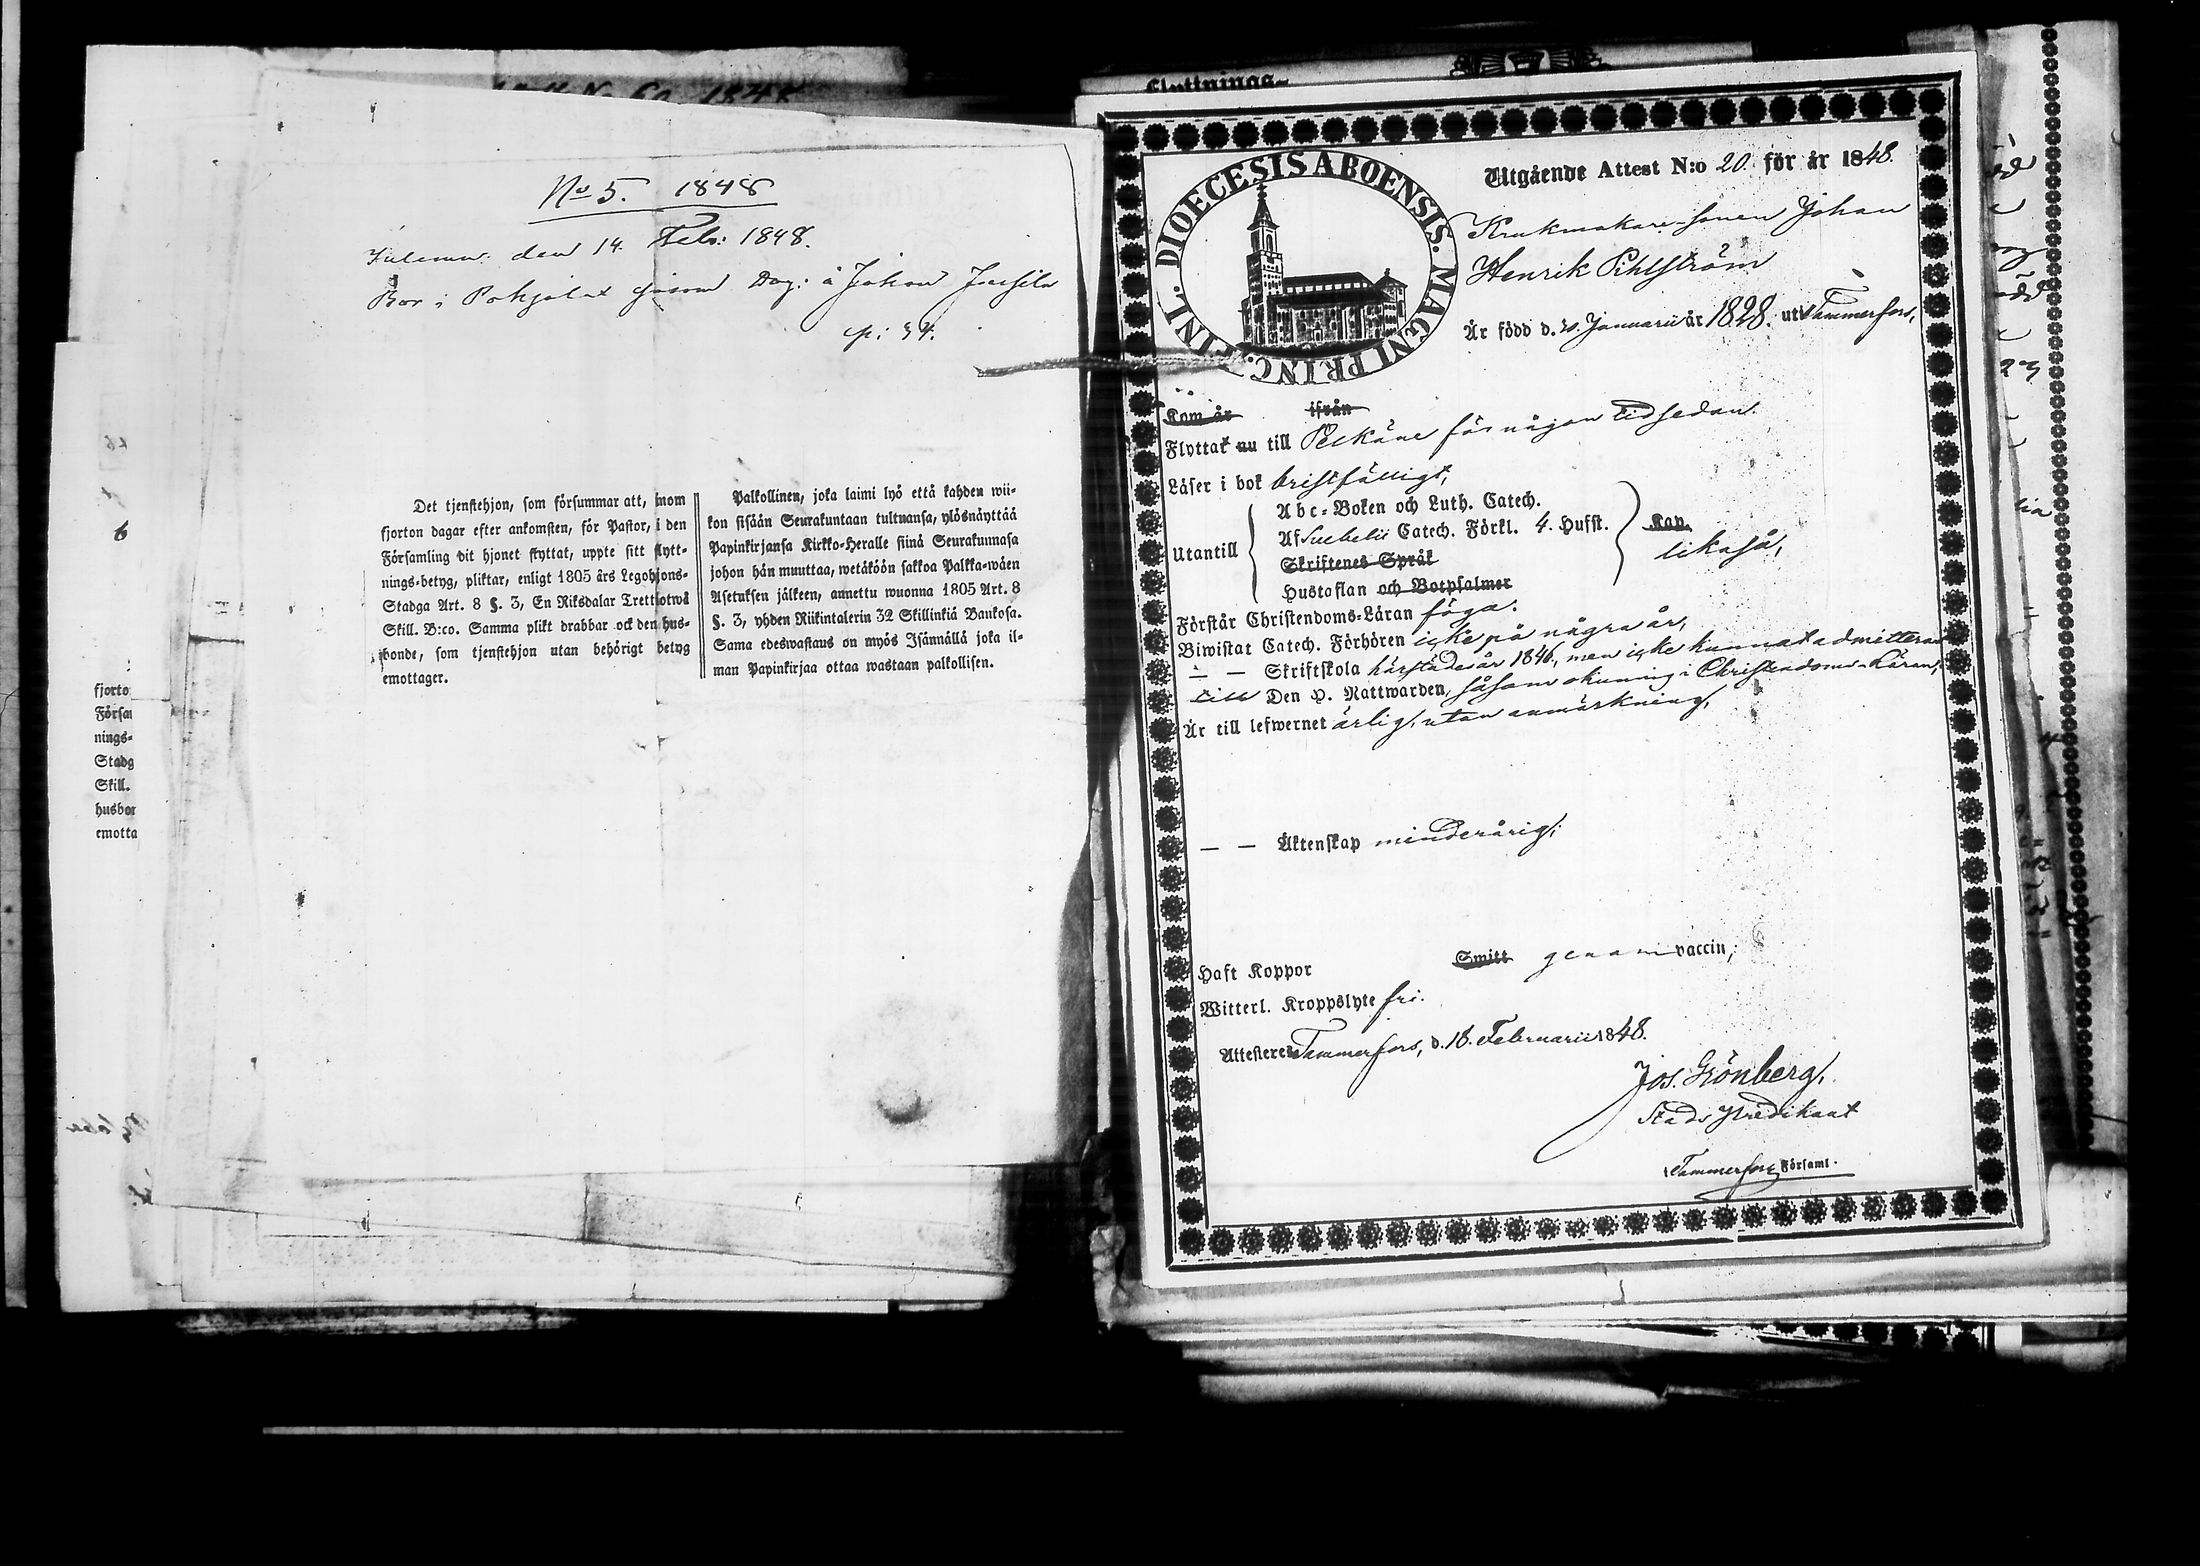 No 5. 1848
den 14 Feb: 1848.
Bor i Pohjalax såsom Dag: å Johan
p: 94.
Det tjenstehjon, som försummar att, inom
fjorton dagar efter ankomsten, för Pastor, i den
Församling dit hjonet flyttat, uppte sitt flytt-
nings-betyg, pliktar, enligt 1805 års Legohjons-
Stadga Art. 8 §. 3, En Riksdalar Trettiotwå
Skill. B:co. Samma plikt drabbar ock den hus-
bonde, som tjenstehjon utan behörigt betyg
emottager.
Palkollinen, joka laimi lyö että kahden wii-
kon sisään Seurakuntaan tultuansa, ylösnäyttää
Papinkirjansa Kirkko-Heralle siinä Seurakunnasa
johon hän muuttaa, wetäköön sakkoa Palkka-wäen
Asetuksen jälkeen, annettu wuonna 1805 Art. 8
§. 3, yhden Riikintalerin 32 Skillinkiä Bankosa.
Sama edeswastaus on myös Isännällä joka il-
man Papinkirjaa ottaa wastaan palkollisen.
fjorto
Försa
nings-
Stadg
Skill.
husbon
emotta
Flyttnings-
DIOECESIS ABOENSIS. MAGNI PRINC. FINL.
Utgående Attest N:o 20. för år 1848.
Krukmakare sonen Johan
Henrik Pihlström
Är född d. 20. Januarii år 1828. uti Tammerfors,
Kom år ifrån
Flyttat nu till Pelkäne för någon tid sedan.
Läser i bok bristfälligt,
Utantill
Abc-Boken och Luth. Catech.
Af Svebelii Catech. Förkl. 4. Hufst.
Skriftenes Språk
Hustaflan och Botpsalmer
Kap.
likaså,
Förstår Christendoms-Läran föga.
Biwistat Catech. Förhören icke på några år,
— — Skriftskola härstädes år 1846, men icke kunnat admitteras
till Den H. Nattwarden, såsom okunnig i Christendoms-Läran,
Är till lefwernet ärlig, utan anmärkning,
— — Äktenskap minderårig;
Haft Koppor Smitt genom vaccin;
Witterl. Kroppslyte fri.
Attesterer Tammerfors, d. 18. Februarii 1848.
Jos. Grönberg,
Stads Predikant
i Tammerfors Församl.